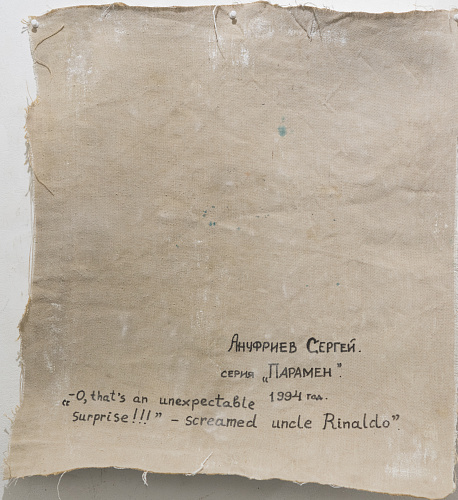 Ануфриев Сергей.
серия „Парамен”.
1994 год.
„-O, that's an unexpectable
surprise!!!” - screamed uncle Rinaldo”.